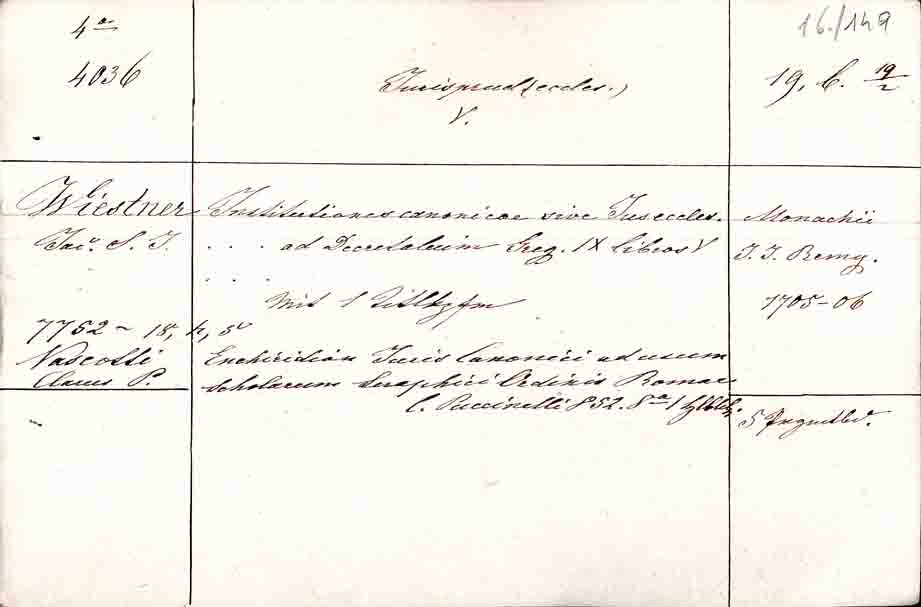 4º
4036
Jurisprud(eccles.)
V.
16./149
19, b. 19/2
Wiestner
Jac. S. J.
Institutiones canonicae sive Jus eccles.
. . . ad Decretalium Greg. IX libros V
. . .
mit 1 Titlkpfm
Monachii
J. J. Remy.
1705-06
7752 ~ 18, h, 5
Vascotti
Clarus P.
Enchiridion Juris Canonici ad usum
scholarum Seraphici Ordinis Romae
C. Puccinelli 852. 8º 1
5 Prgmtbd.